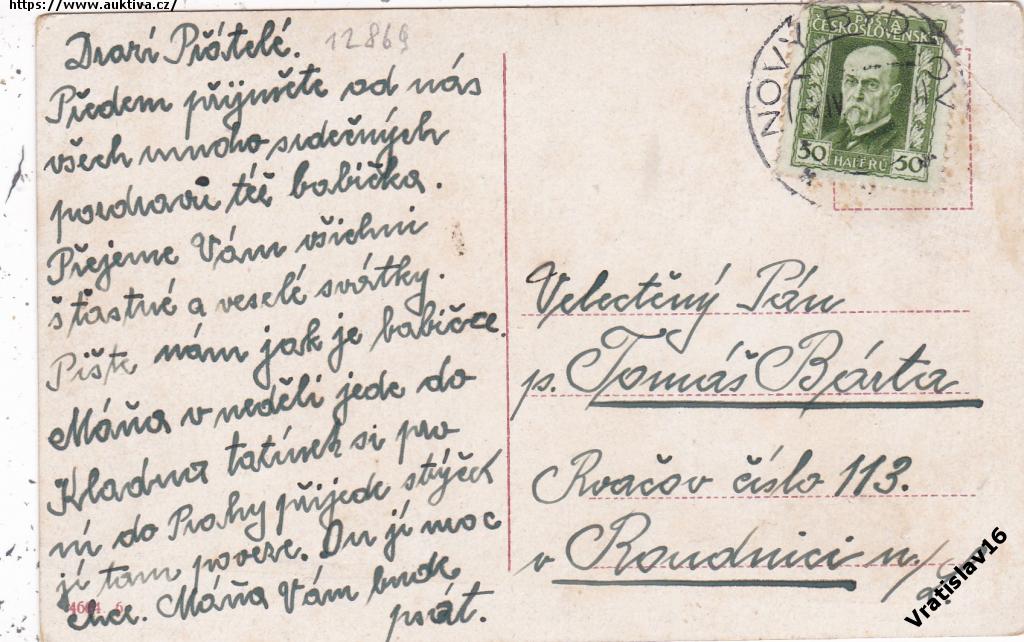 https://www.auktiva.cz/
Drazí Přátelé.
12869
Předem přijměte od nás
všech mnoho srdečných
pozdravů též babička.
Přejeme Vám všichni
šťastné a veselé svátky.
Pište nám jak je babičce.
Máňa v neděli jede do
Kladna tatínek si pro
ní do Prahy přijede strýček
jí tam poveze. On jí moc
chce. Máňa Vám bude
psát.
POŠTA
ČESKOSLOVENSKÁ
50 HALÉŘŮ 50
NOVÝ BYDŽOV
Velectěný Pán
p. Tomáš Bárta
Kvačov číslo 113.
v Roudnici n/
Vratislav16